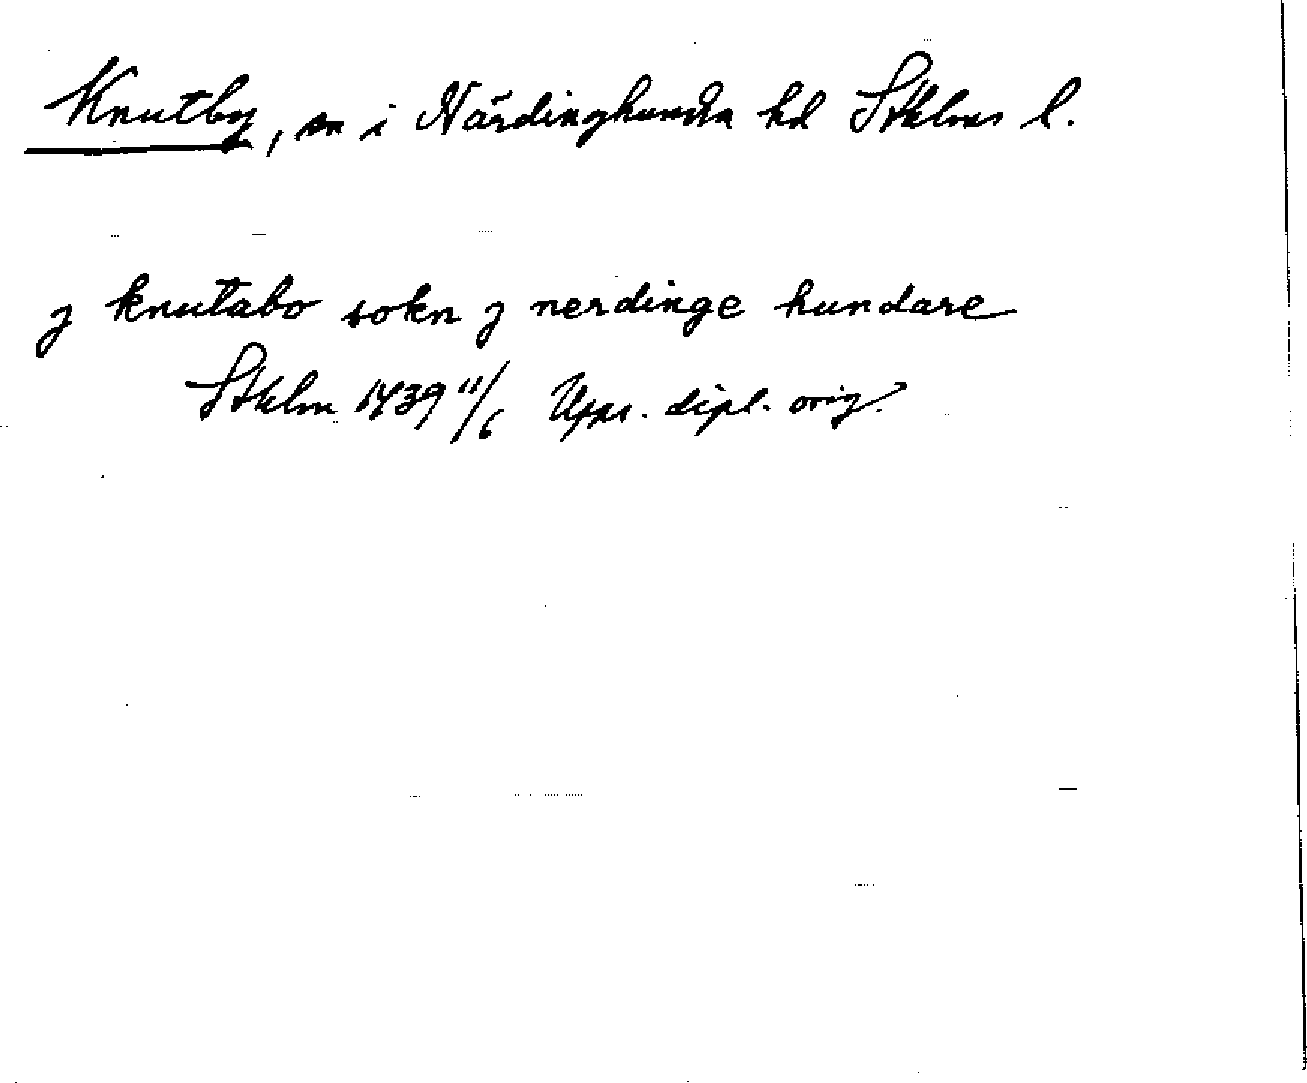 Knutby, sn i Närdinghundra hd Stklms l.
j knutabo sokn j nerdinge hundare
Stklm 1439 11/6 Upps. dipl. orig.